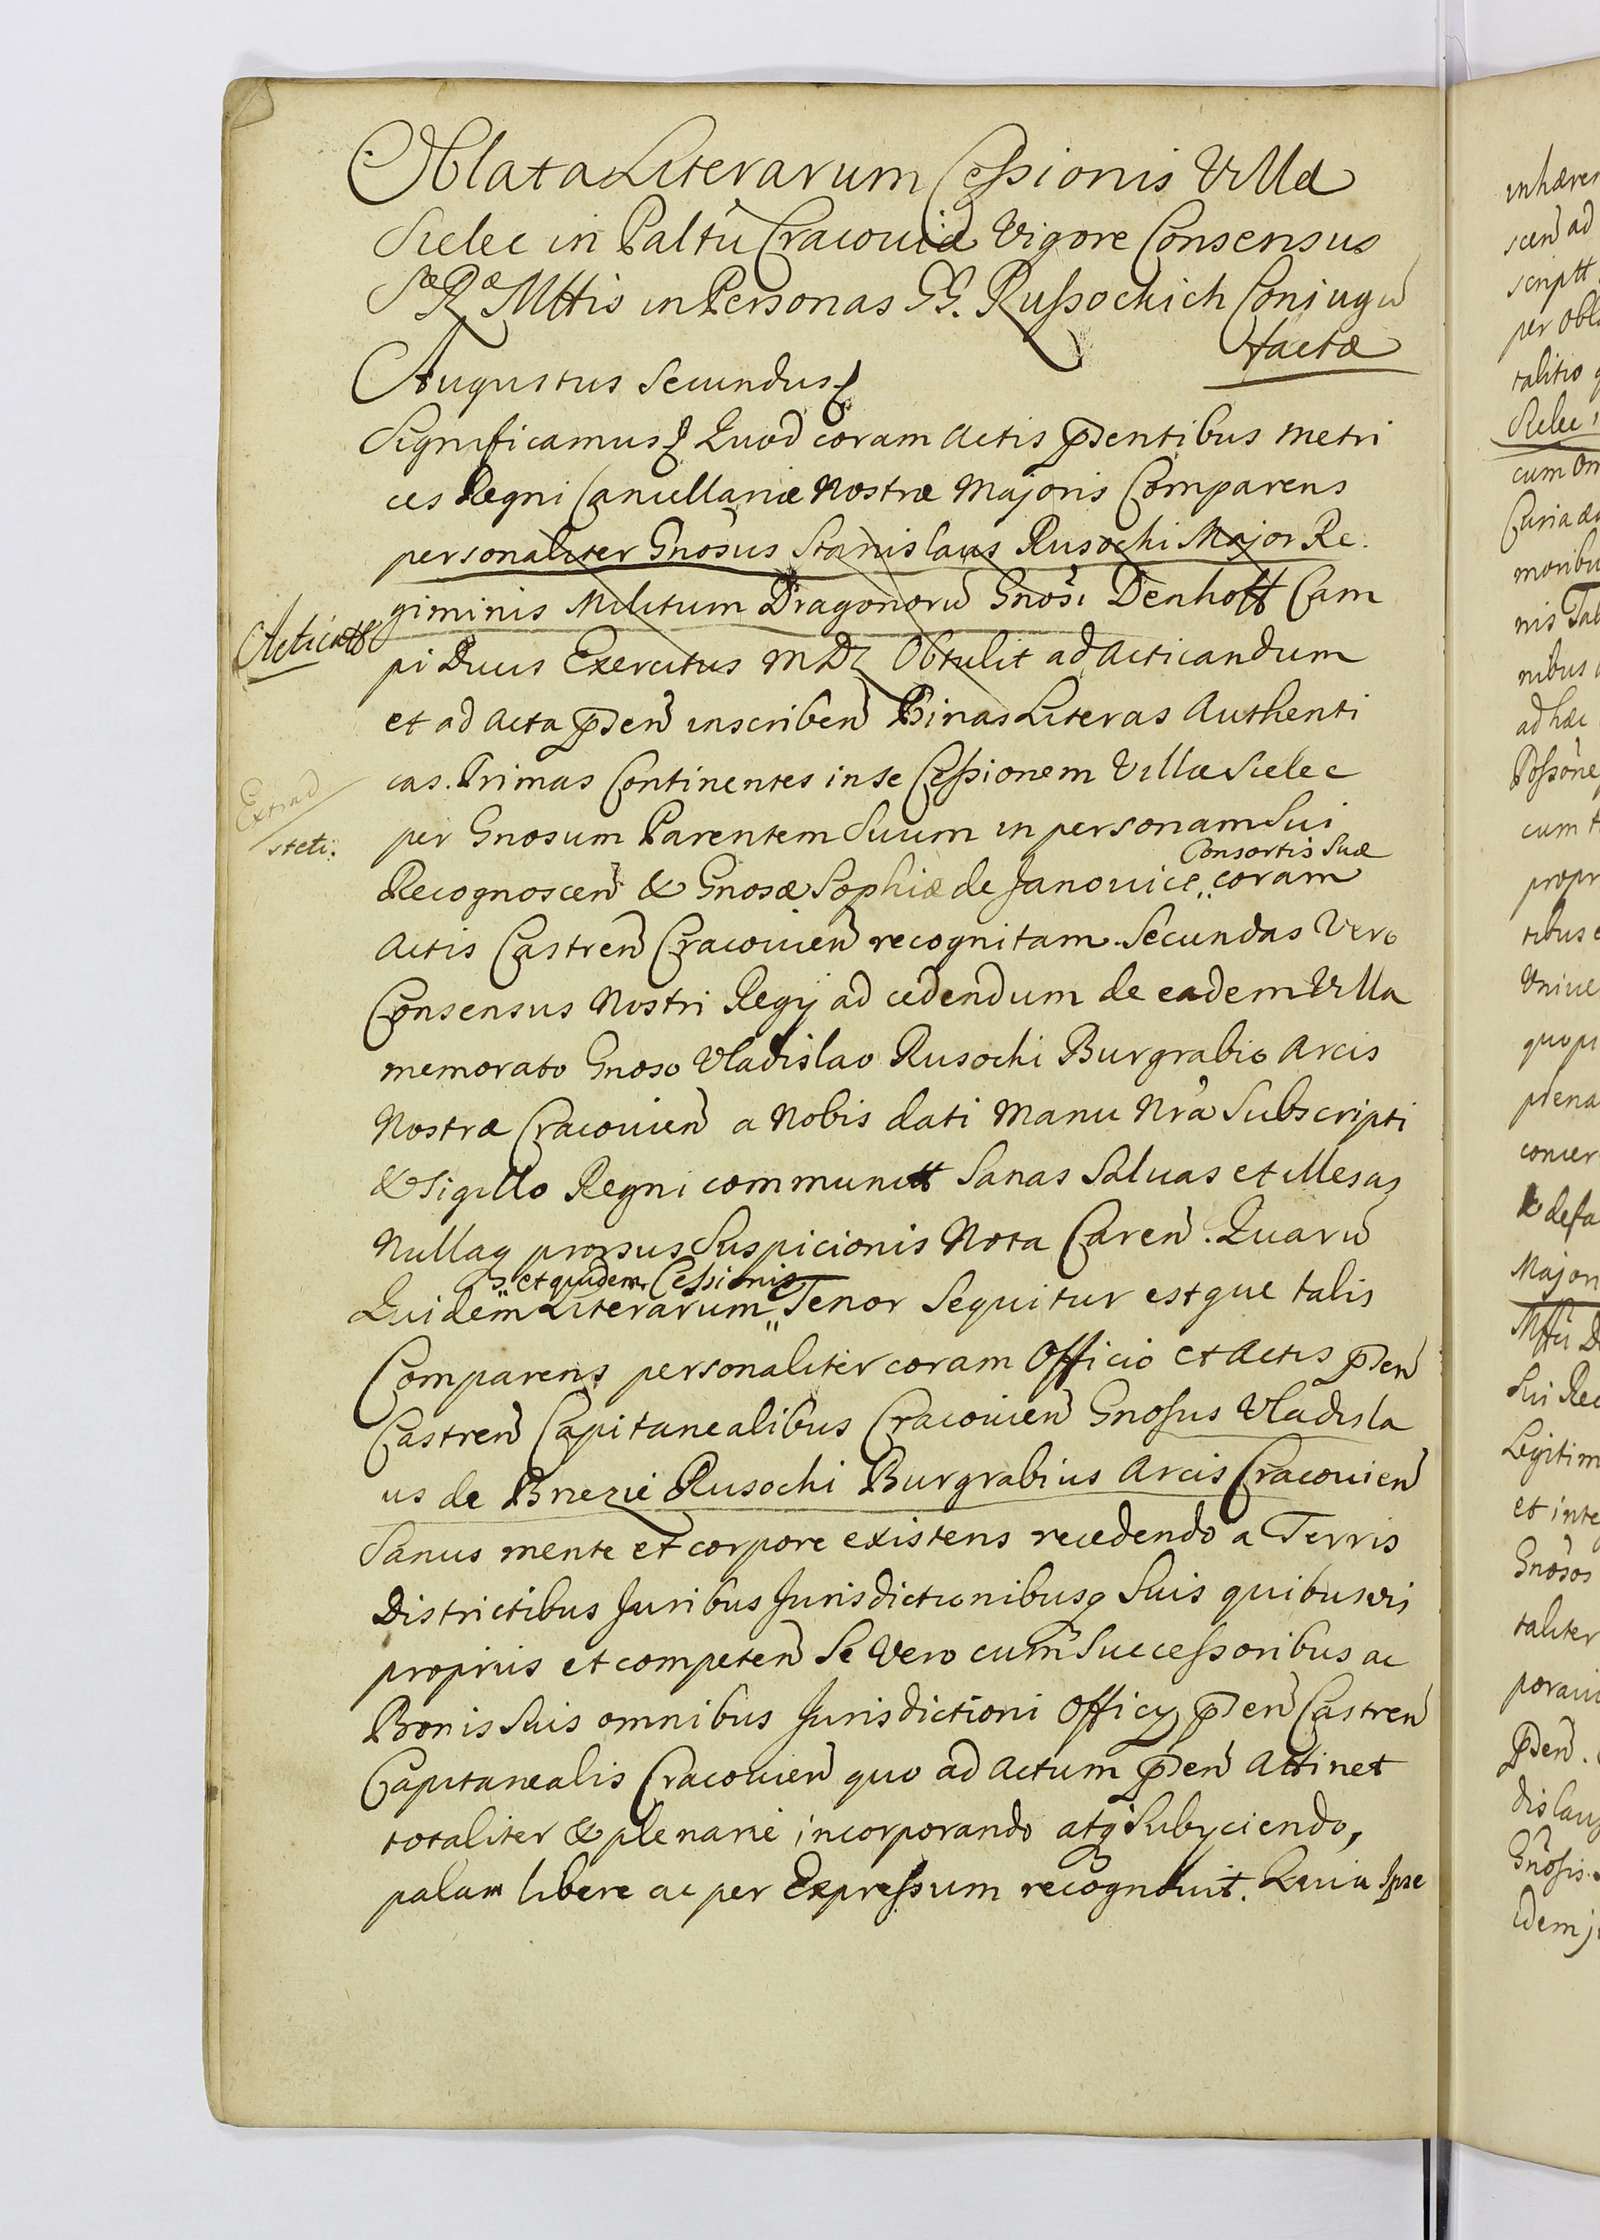 Oblata Literarum Cessionis Villæ
Sielec in Paltũ Cracoviæ Vigore Consensus
Sæ Ræ Mttis in Personas GG. Russochich Conjugũ
factæ
Augustus Secundus
Significamus Quod coram Actis pñsentibus Metri
ces Regni Cancellariæ Nostræ Majoris Comparens
personaliter Gnosus Stanislaus Rusochi Major Re
giminis Militum Dragonorũ Gnosi Denhoff Cam
Acticatt
pi Ducis Exercitus MDL Obtulit ad Acticandum
et ad Acta pñsen inscriben Binas Literas Authenti
cas. Primas Continentes in se Cessionem Villæ Sielec
Extrad
per Gnosum Parentem Suum in personam Sui
steti.
Consortis Suæ
Recognoscen & Gnosæ Sophiæ de Janovice coram
Actis Castren Cracovien recognitam. Secundas Vero
Consensus Nostri Regij ad cedendum de eadem Villa
memorato Gnoso Vladislao Rusochi Burgrabio Arcis
Nostræ Cracovien a Nobis dati Manu Nra Subscripti
& Sigillo Regni communitt Sanas Salvas et illesas
Nullaq prorsus Suspicionis Nota Caren. Quarũ
et quidem Cessionis
Quidem Literarum Tenor Sequitur estque talis
Comparens personaliter coram Officio et Actis pñsen
Castren Capitanealibus Cracovien Gnosus Vladisla
us de Brezie Rusochi Burgrabius Arcis Cracovien
Sanus mente et corpore existens recedendo a Terris
Districtibus Juribus Jurisdictionibusq Suis quibusvis
propriis et competen Se Vero cum Successoribus ac
Bonis Suis omnibus Jurisdictioni Officy pñsen Castren
Capitanealis Cracovien quo ad Actum pñsen Attinet
totaliter & plenarie incorporando atq Subyciendo,
palam libere ac per Expressum recognovit. Quia Ipse
inhæres
scen ad
scriptt
per obl
talitio
Sielec
cum om
Curia
moribu
nis Tab
nibus
ad hæc
Possone
cum
propr
tibus
Unive
quopi
plena
concer
& defa
Major
Mttũ D
Sui Rec
Legitim
et inte
Gnosos
taliter
poravi
pñsen.
dislaus
Gnosis.
idem j